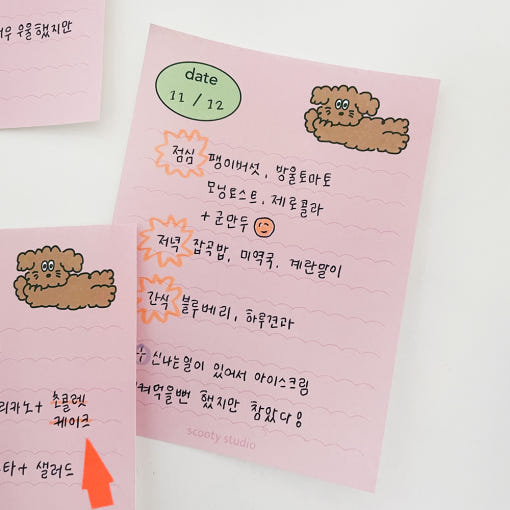 우울했지만
date
11 / 12
점심 팽이버섯, 방울토마토
모닝토스트, 제로콜라
+ 군만두
저녁 잡곡밥, 미역국, 계란말이
간식 블루베리, 하루견과
신나는일이 있어서 아이스크림
시켜먹을뻔 했지만 참았다!
scooty studio
리카노+ 초콜렛
케이크
타+ 샐러드